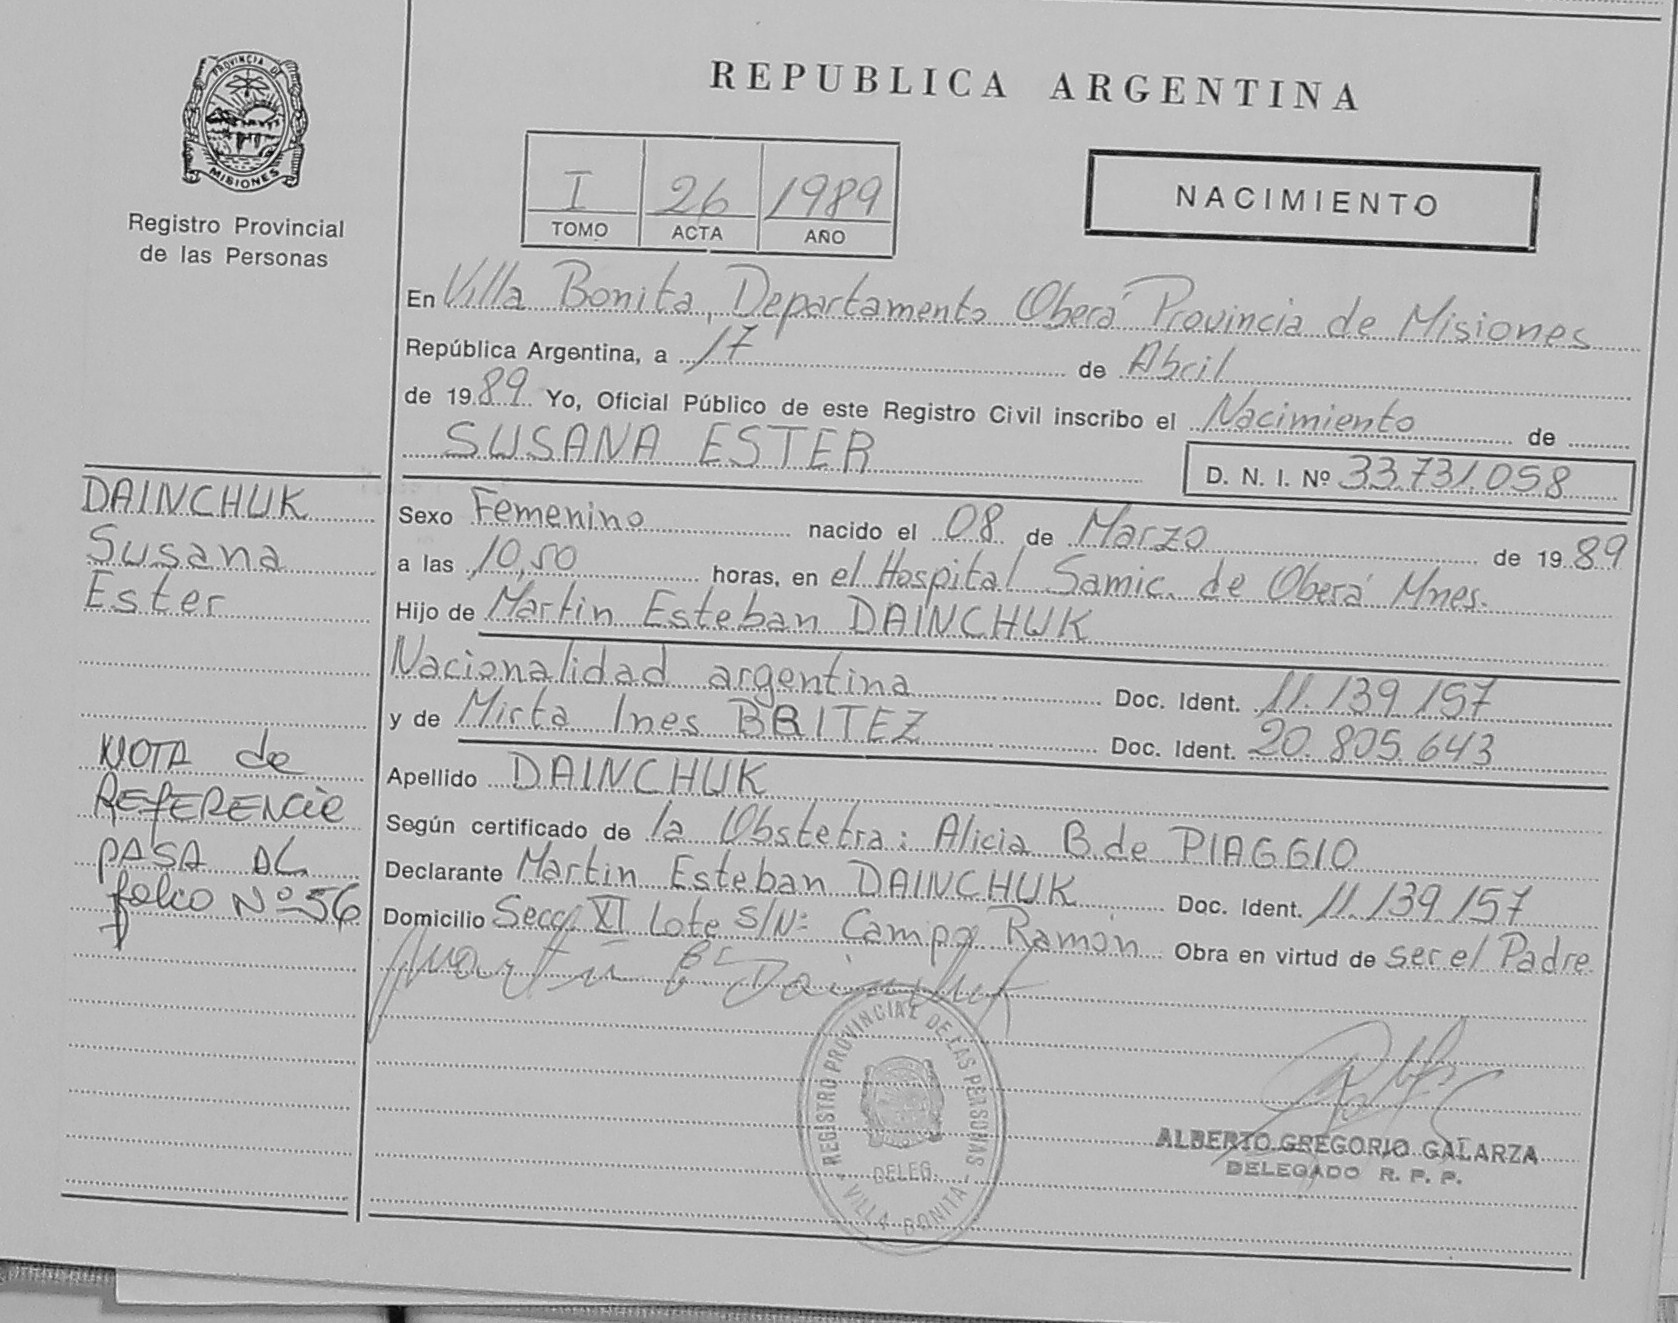 REPUBLICA ARGENTINA
PROVINCIA DE
MISIONES
Registro Provincial
de las Personas
I 26 1989
TOMO ACTA AÑO
NACIMIENTO
En Villa Bonita, Departamento Oberá Provincia de Misiones
República Argentina, a 17 de Abril
de 1989 Yo, Oficial Público de este Registro Civil inscribo el Nacimiento de
SUSANA ESTER
D. N. I. Nº 33.731.058
DAINCHUK
Susana
Ester
Sexo Femenino nacido el 08 de Marzo de 1989
a las 10,50 horas, en el Hospital Samic. de Oberá Mnes.
Hijo de Martin Esteban DAINCHUK
Nacionalidad argentina Doc. Ident. 11.139.157
y de Mirta Ines BRITEZ Doc. Ident. 20.805.643
Apellido DAINCHUK
Según certificado de la Obstetra: Alicia B. de PIAGGIO
Declarante Martin Esteban DAINCHUK Doc. Ident. 11.139.157
Domicilio Secc. XI Lote S/Nº Campo Ramón Obra en virtud de ser el Padre
NOTA de
REFERENCIA
PASA AL
folio Nº 56
Martin E. Dainchuk
REGISTRO PROVINCIAL DE LAS PERSONAS
DELEG.
VILLA BONITA
ALBERTO GREGORIO GALARZA
DELEGADO R. P. P.